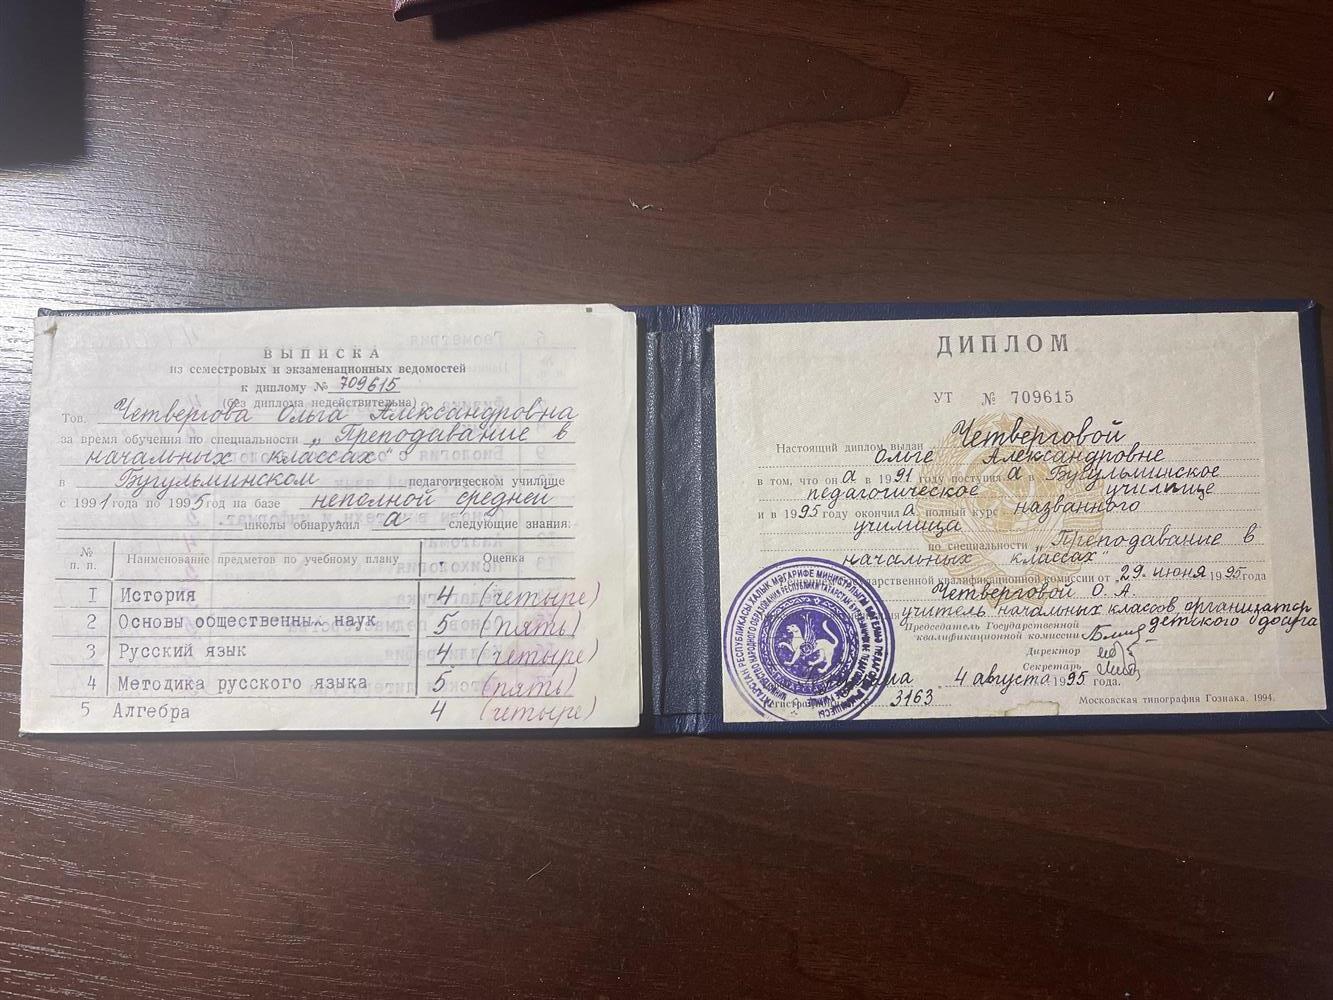 ВЫПИСКА
из семестровых и экзаменационных ведомостей
к диплому № 709615
(без диплома недействительна)
Тов. Четвергова Ольга Александровна
за время обучения по специальности „Преподавание в
начальных классах"
в Бугульминском педагогическом училище
с 1991 года по 1995 год на базе неполной средней
школы обнаружил а следующие знания:
№ п. п. Наименование предметов по учебному плану Оценка
1 История 4 (четыре)
2 Основы общественных наук 5 (пять)
3 Русский язык 4 (четыре)
4 Методика русского языка 5 (пять)
5 Алгебра 4 (четыре)
ДИПЛОМ
УТ № 709615
Настоящий диплом выдан Четверговой
Ольге Александровне
в том, что он а в 1991 году поступил а в Бугульминское
педагогическое училище
и в 1995 году окончил а полный курс названного
училища
по специальности „Преподавание в
начальных классах"
Государственной квалификационной комиссии от „29" июня 1995 года
Четверговой О. А.
учитель начальных классов, организатор
детского досуга
Председатель Государственной
квалификационной комиссии
Директор
Секретарь
4 августа 1995 года.
3163
Московская типография Гознака. 1994.